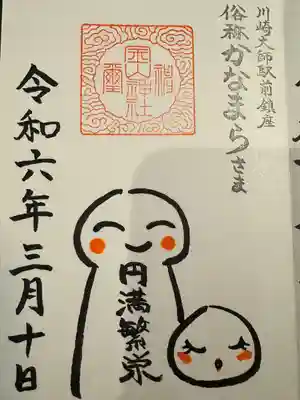 川崎大師駅前鎮座
俗称かなまらさま
円満繁栄
令和六年三月十日